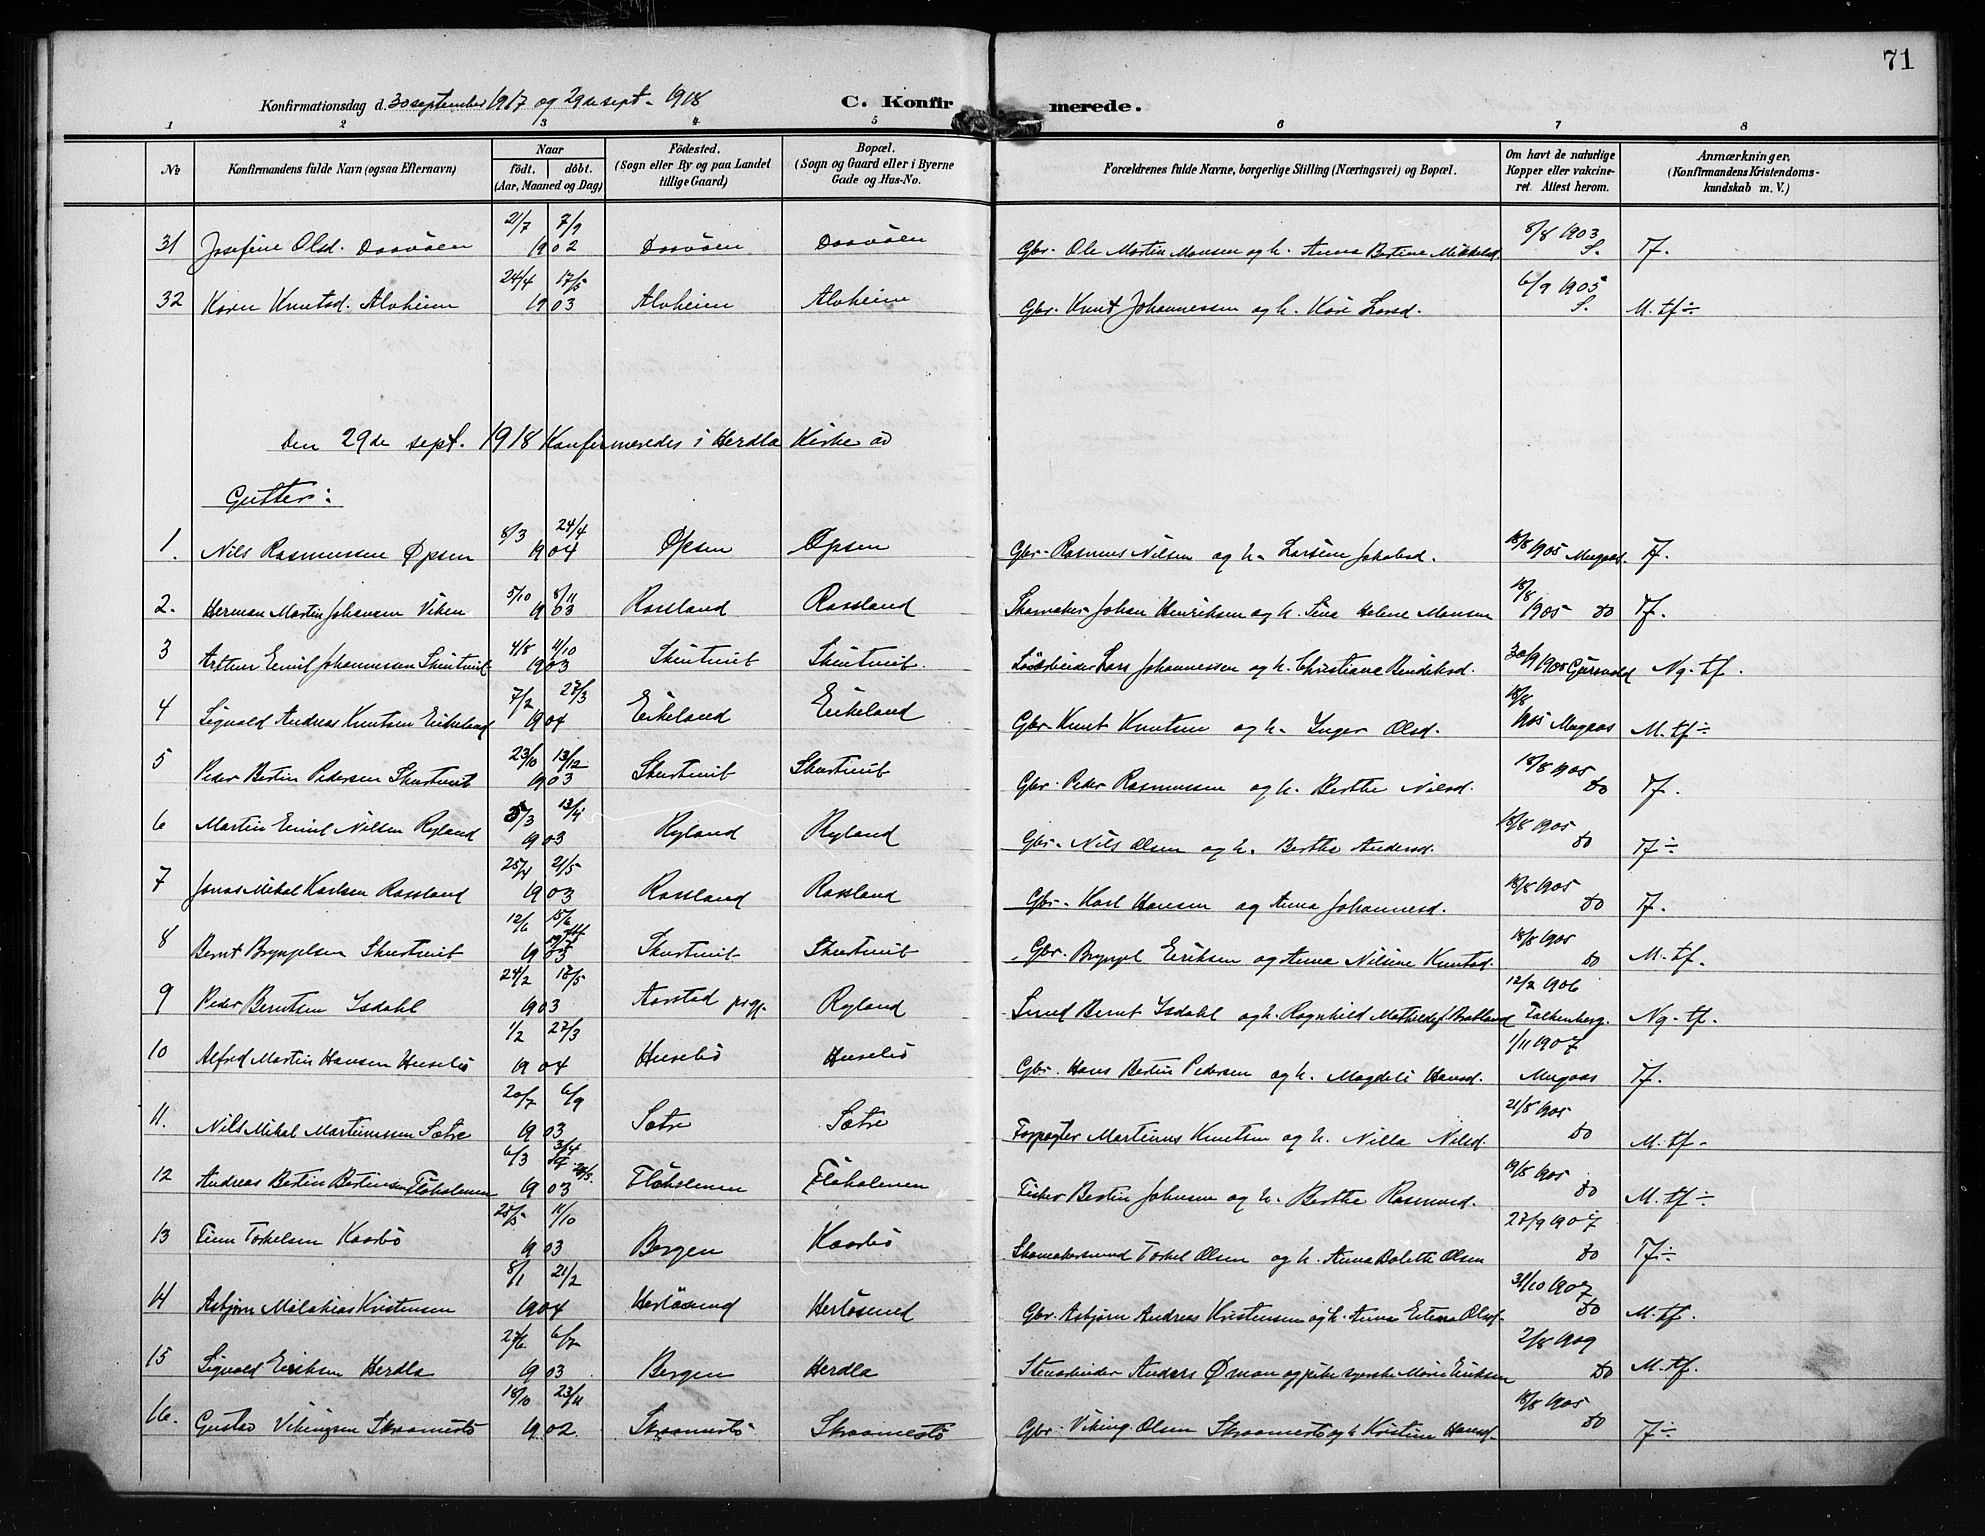 71
Konfirmationsdag d. 30 september 1917 og 29de sept. 1918 C. Konfirmerede.
1 2 3 4 5 6 7 8
No Konfirmandens fulde Navn (ogsaa Efternavn) Naar födt. döbt. (Aar, Maaned og Dag) Födested. (Sogn eller By og paa Landet tillige Gaard) Bopæl. (Sogn og Gaard eller i Byerne Gade og Hus-No. Forældrenes fulde Navne, borgerlige Stilling (Næringsvei) og Bopæl. Om havt de naturlige Kopper eller vakcineret. Attest herom. Anmærkninger. (Konfirmandens Kristendomskundskab m. V.)
31 Josefine Olsd. Davöen 21/7 7/9 1902 Davöen Davöen Gbr. Ole Martin Monsen og h. Anna Bertine Mikkelsd. 8/8 1903 S. Tf.
32 Karen Knutsd. Alvheim 24/4 17/5 1903 Alvheim Alvheim Gbr. Knut Johannessen og h. Kari Larsd. 6/9 1905 S. M. tf ÷
Den 29de sept. 1918 Konfirmeredes i Herdla Kirke av
Gutter:
1. Nils Rasmussen Øpsen 8/3 24/4 1904 Øpsen Øpsen Gbr. Rasmus Nilsen og h. Larsine Jakobsd. 18/8 1905 Mugaas. Tf.
2. Herman Martin Johansen Viken 5/10 8/11 1903 Rossland Rossland Skomaker Johan Henriksen og h. Sina Helene Monsen 18/8 1905 do Tf.
3 Arthur Emil Johannessen Skurtveit 4/8 11/10 1903 Skurtveit Skurtveit. Lars Johannessen og h. Christiane Bendiksd. 30/9 1905 Ng. tf.
4 Sigvald Andreas Knutsen Eikeland 7/2 27/3 1904 Eikeland Eikeland Gbr. Knut Knutsen og h. Inger Olsd. 18/8 1905 Mugaas M. tf ÷
5 Peder Bertin Pedersen Skurtveit 23/10 13/12 1903 Skurtveit Skurtveit Gbr. Peder Rasmussen og h. Berthe Nilsd. 18/8 1905 do Tf.
6 Martin Emil Nilsen Ryland 5/3 13/4 1903 Ryland Ryland Gbr. Nils Olsen og h. Berthe Andersd. 18/8 1905 do Tf ÷
7 Jonas Mikal Karlsen Rossland 25/4 21/5 1903 Rossland Rossland Gbr. Karl Hansen og Anna Johannesd. 18/8 1905 do Tf.
8 Bernt Brynjelsen Skurtveit 12/6 15/6 1903 Skurtveit Skurtveit Gbr. Brynjel Eriksen og Anna Nilsine Knutsd. 18/8 1905 do M. tf.
9 Peder Berntsen Isdahl 24/2 17/5 1903 Aarstad prgj. Ryland Smed Bernt Isdahl og h. Ragnhild Mathilde 12/2 1906 Falkenberg. Ng. tf.
10 Alfred Martin Hansen Husebö 1/2 27/3 1904 Husebö Husebö Gbr. Hans Bertin Pedersen og h. Magdeli Hansd. 1/11 1907 Mugaas Tf.
11. Nils Mikal Martinussen Sætre 20/7 6/9 1903 Sætre Sætre Forpagter Martinus Knutsen og h. Nilla Nilsd. 21/8 1905 do M. tf.
12 Andreas Bertin Bertinsen Flöholmen 6/3 3/4 1903 Flöholmen Flöholmen Fisker Bertin Johnsen og h. Berthe Rasmusd. 19/8 1905 do M. tf ÷
13 Finn Torkelsen Kaarbö 25/5 11/10 1903 Bergen Kaarbö Skomakersvend Torkel Olsen og h. Anna Bolette Olsen 27/9 1907 do Tf ÷
14 Asbjörn Malakias Kristensen 8/1 21/2 1904 Herlösund Herlösund Gbr. Asbjörn Andreas Kristensen og h. Anna Olsd. 31/10 1907 do M. tf.
15 Sigvald Eriksen Herdla 27/6 6/7 1903 Bergen Herdla Stenarbeider Anders Öman og pike syerske Marie Eriksen 2/8 1909 do M. tf.
16. Gustav Vikingsen Skraamestö 18/10 23/11 1902 Skraamestö Skraamestö Gbr. Viking Olsen Skraamestö og h. Kristine Hansd. 18/8 1905 do Tf ÷